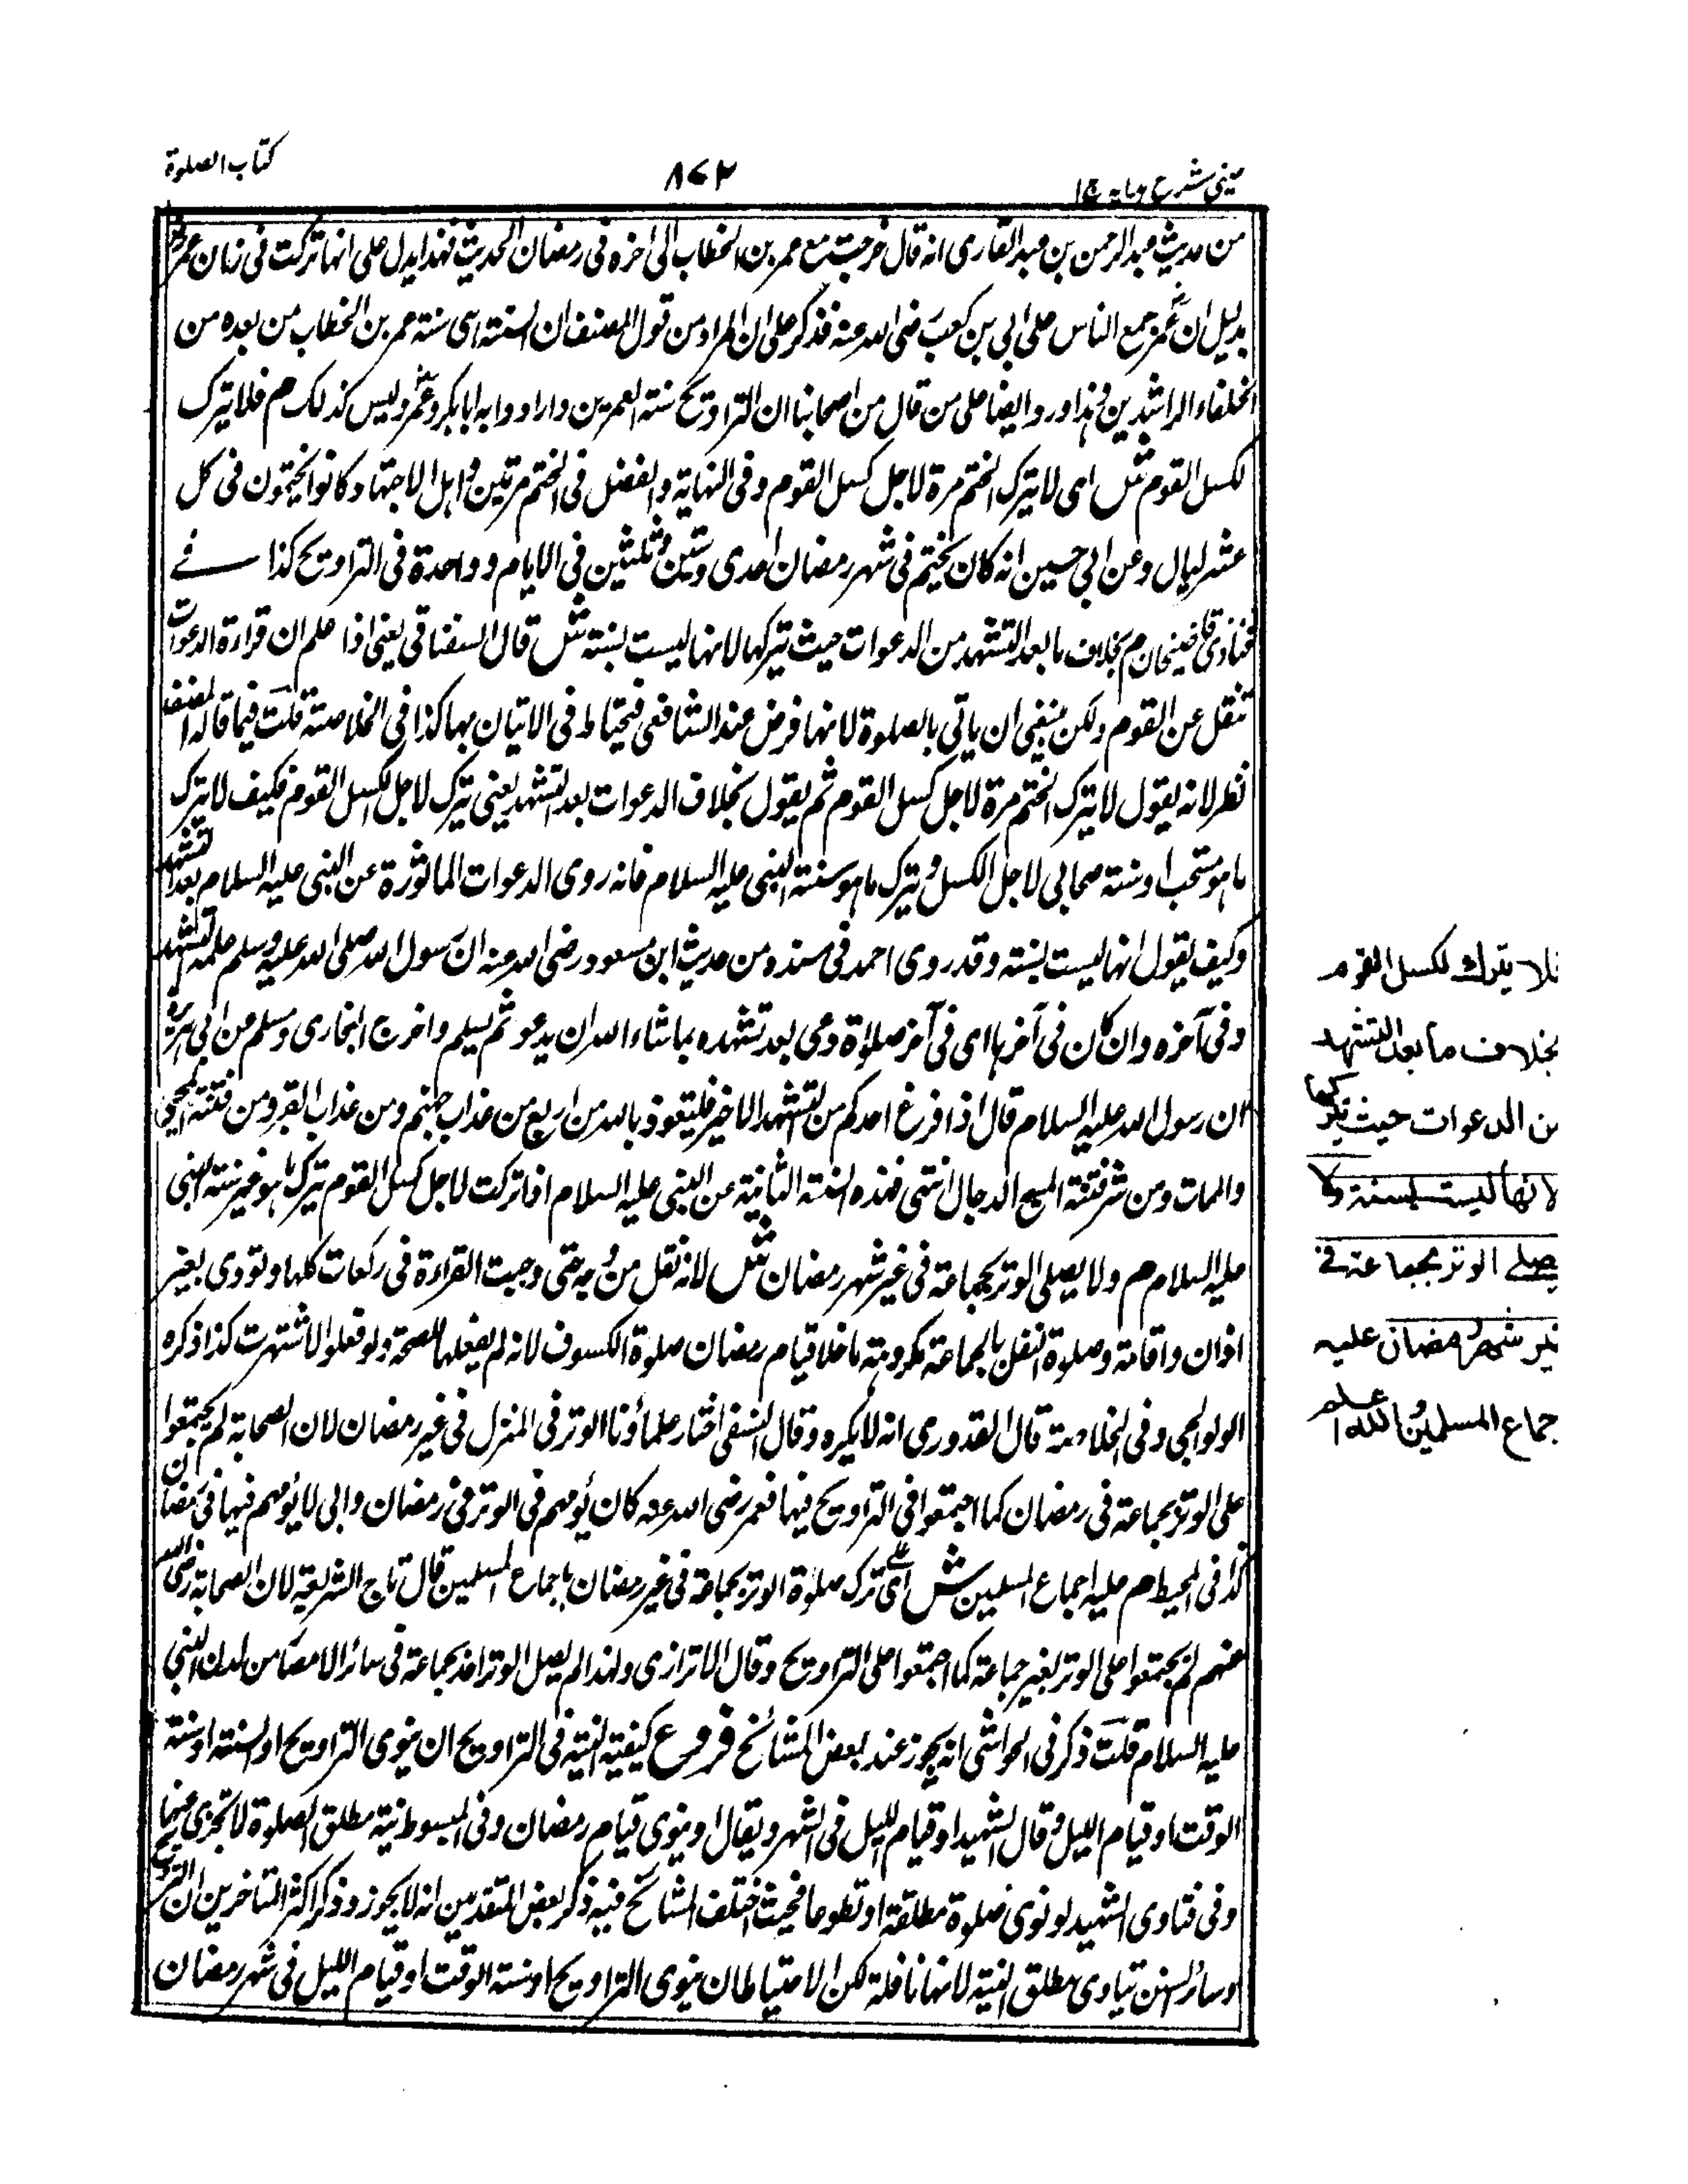 عینی شرح ہدایہ ج ا
۸۷۲
کتاب الصلوة
من حدیث عبد الرحمن بن عبد القاری انه قال خرجت مع عمر بن الخطاب الی اخره فی رمضان الحدیث فهذا یدل علی انها ترکت فی زمان عمرؓ
بدلیل ان عمرؓ جمع الناس علی ابی بن کعب رضی الله عنه فذکر علی ان المراد من قول المصنف ان السنة ای سنة عمر بن الخطاب من بعده من
الخلفاء الراشدین وهذا ورد ایضا علی من قال من اصحابنا ان التراویح سنة العمرین وارادوا به ابابکر وعمرؓ ولیس کذلک م فلا یترک
لکسل القوم ش ای لا یترک الختم مرة لاجل کسل القوم وفی النهایة والفضل فی الختم مرتین واهل الاجتهاد کانوا یختمون فی کل
عشر لیال وعن ابی حسین انه کان یختم فی شهر رمضان احدی وستین وثلثین فی الایام وواحدة فی التراویح کذا فے
فتاوی قاضیخان م بخلاف ما بعد التشهد من الدعوات حیث یترکها لانها لیست بسنة ش قال السغناقی یعنی اذا علم ان قراءة الدعوات
تثقل عن القوم ولکن ینبغی ان یاتی بالصلوة لانها فرض عند الشافعی فیحتاط فی الاتیان بها کذا فی الخلاصة قلت فیما قاله المصنف
نظر لانه یقول لا یترک الختم مرة لاجل کسل القوم ثم یقول بخلاف الدعوات بعد التشهد یعنی یترک لاجل کسل القوم فکیف لا یترک
ما هو مستحب او سنة صحابی لاجل الکسل ویترک ما هو سنة النبی علیه السلام فانه روی الدعوات الماثورة عن النبی علیه السلام بعد التشهد
وکیف یقول انها لیست بسنة وقد روی احمد فی مسنده من حدیث ابن مسعود رضی الله عنه ان رسول الله صلی الله علیه وسلم علمه التشهد
وفی آخره وان کان فی آخرها ای فی آخر صلوة دعی بعد تشهده بما شاء الله ان یدعو ثم یسلم واخرج البخاری ومسلم عن ابی هریرةؓ
ان رسول الله علیه السلام قال اذا فرغ احدکم من التشهد الاخیر فلیتعوذ بالله من اربع من عذاب جهنم ومن عذاب القبر ومن فتنة المحیی
والممات ومن شر فتنة المسیح الدجال انتهی فهذه السنة الثابتة عن النبی علیه السلام اذا ترکت لاجل کسل القوم یترک ما هو غیر سنة النبی
علیه السلام م ولا یصلی الوتر بجماعة فی غیر شهر رمضان ش لانه نفل من وجه حتی وجبت القراءة فی رکعات کلها وتودی بغیر
اذان واقامة وصلوة النفل بالجماعة مکروهة ما خلا قیام رمضان صلوة الکسوف لانه لم یفعلها الصحة ولو فعلوا لاشتهرت کذا ذکره
الولوالجی وفی الخلاصة قال القدوری انه لا یکره وقال النسفی اختار علماؤنا الوتر فی المنزل فی غیر رمضان لان الصحابة لم یجتمعوا
علی الوتر بجماعة فی رمضان کما اجتمعوا فی التراویح فیها فعمر رضی الله عنه کان یؤمهم فی الوتر فی رمضان وابی لا یؤمهم فیها فی رمضان
کذا فی المحیط م علیه اجماع المسلمین ش ای علی ترک صلوة الوتر بجماعة فی غیر رمضان باجماع المسلمین قال تاج الشریعة لان الصحابة رضی الله
عنهم لم یجتمعوا علی الوتر بغیر جماعة کما اجتمعوا علی التراویح وقال الاترازی ولهذا لم یصل الوتر احد بجماعة فی سائر الامصار من لدن النبی
علیه السلام قلت ذکر فی الحواشی انه یجوز عند بعض المشائخ فروع کیفیة النیة فی التراویح ان ینوی التراویح او السنة او سنة
الوقت او قیام اللیل وقال الشهید او قیام اللیل فی الشهر ویقال او ینوی قیام رمضان وفی المبسوط نیة مطلق الصلوة لا تجزی عنها
وفی فتاوی الشهید لو نوی صلوة مطلقة او تطوعا فحیث اختلف المشائخ فیه ذکر بعض المتقدمین انه لا یجوز وذکر اکثر المتاخرین ان التراویح
وسائر السنن تتادی بمطلق النیة لانها نافلة لکن الاحتیاط ان ینوی التراویح او سنة الوقت او قیام اللیل فی شهر رمضان
فلا یترک لکسل القوم
بخلاف ما بعد التشهد
من الدعوات حیث یترکها
لانها لیست بسنة ولا
یصلے الوتر بجماعة فے
غیر شهر رمضان علیه
اجماع المسلمین والله اعلم